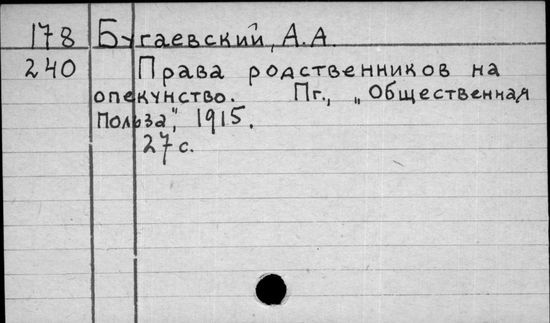 178 Бугаевский, А.А.
240 Права родственников на
опекунство. Пг., „Общественная
Польза", 1915.
27 с.